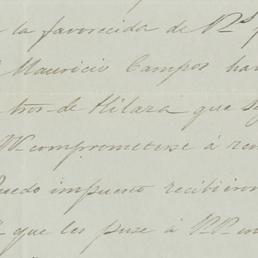 la favorecida de Rs
Mauricio Campos ha
tros de Hilaza que
comprometerse á re
quedo impuesto recibieron
que les puse á